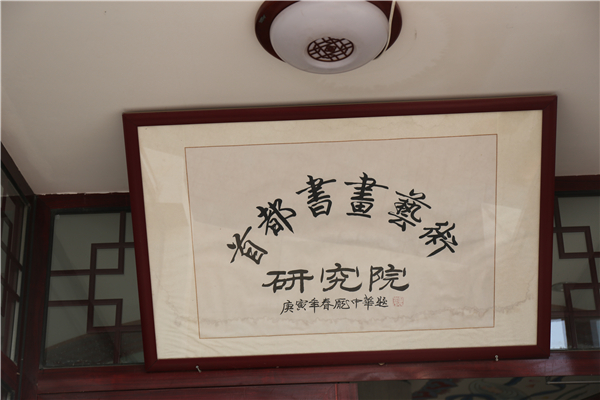 首都书畫藝術
研究院
庚寅年春龐中華題